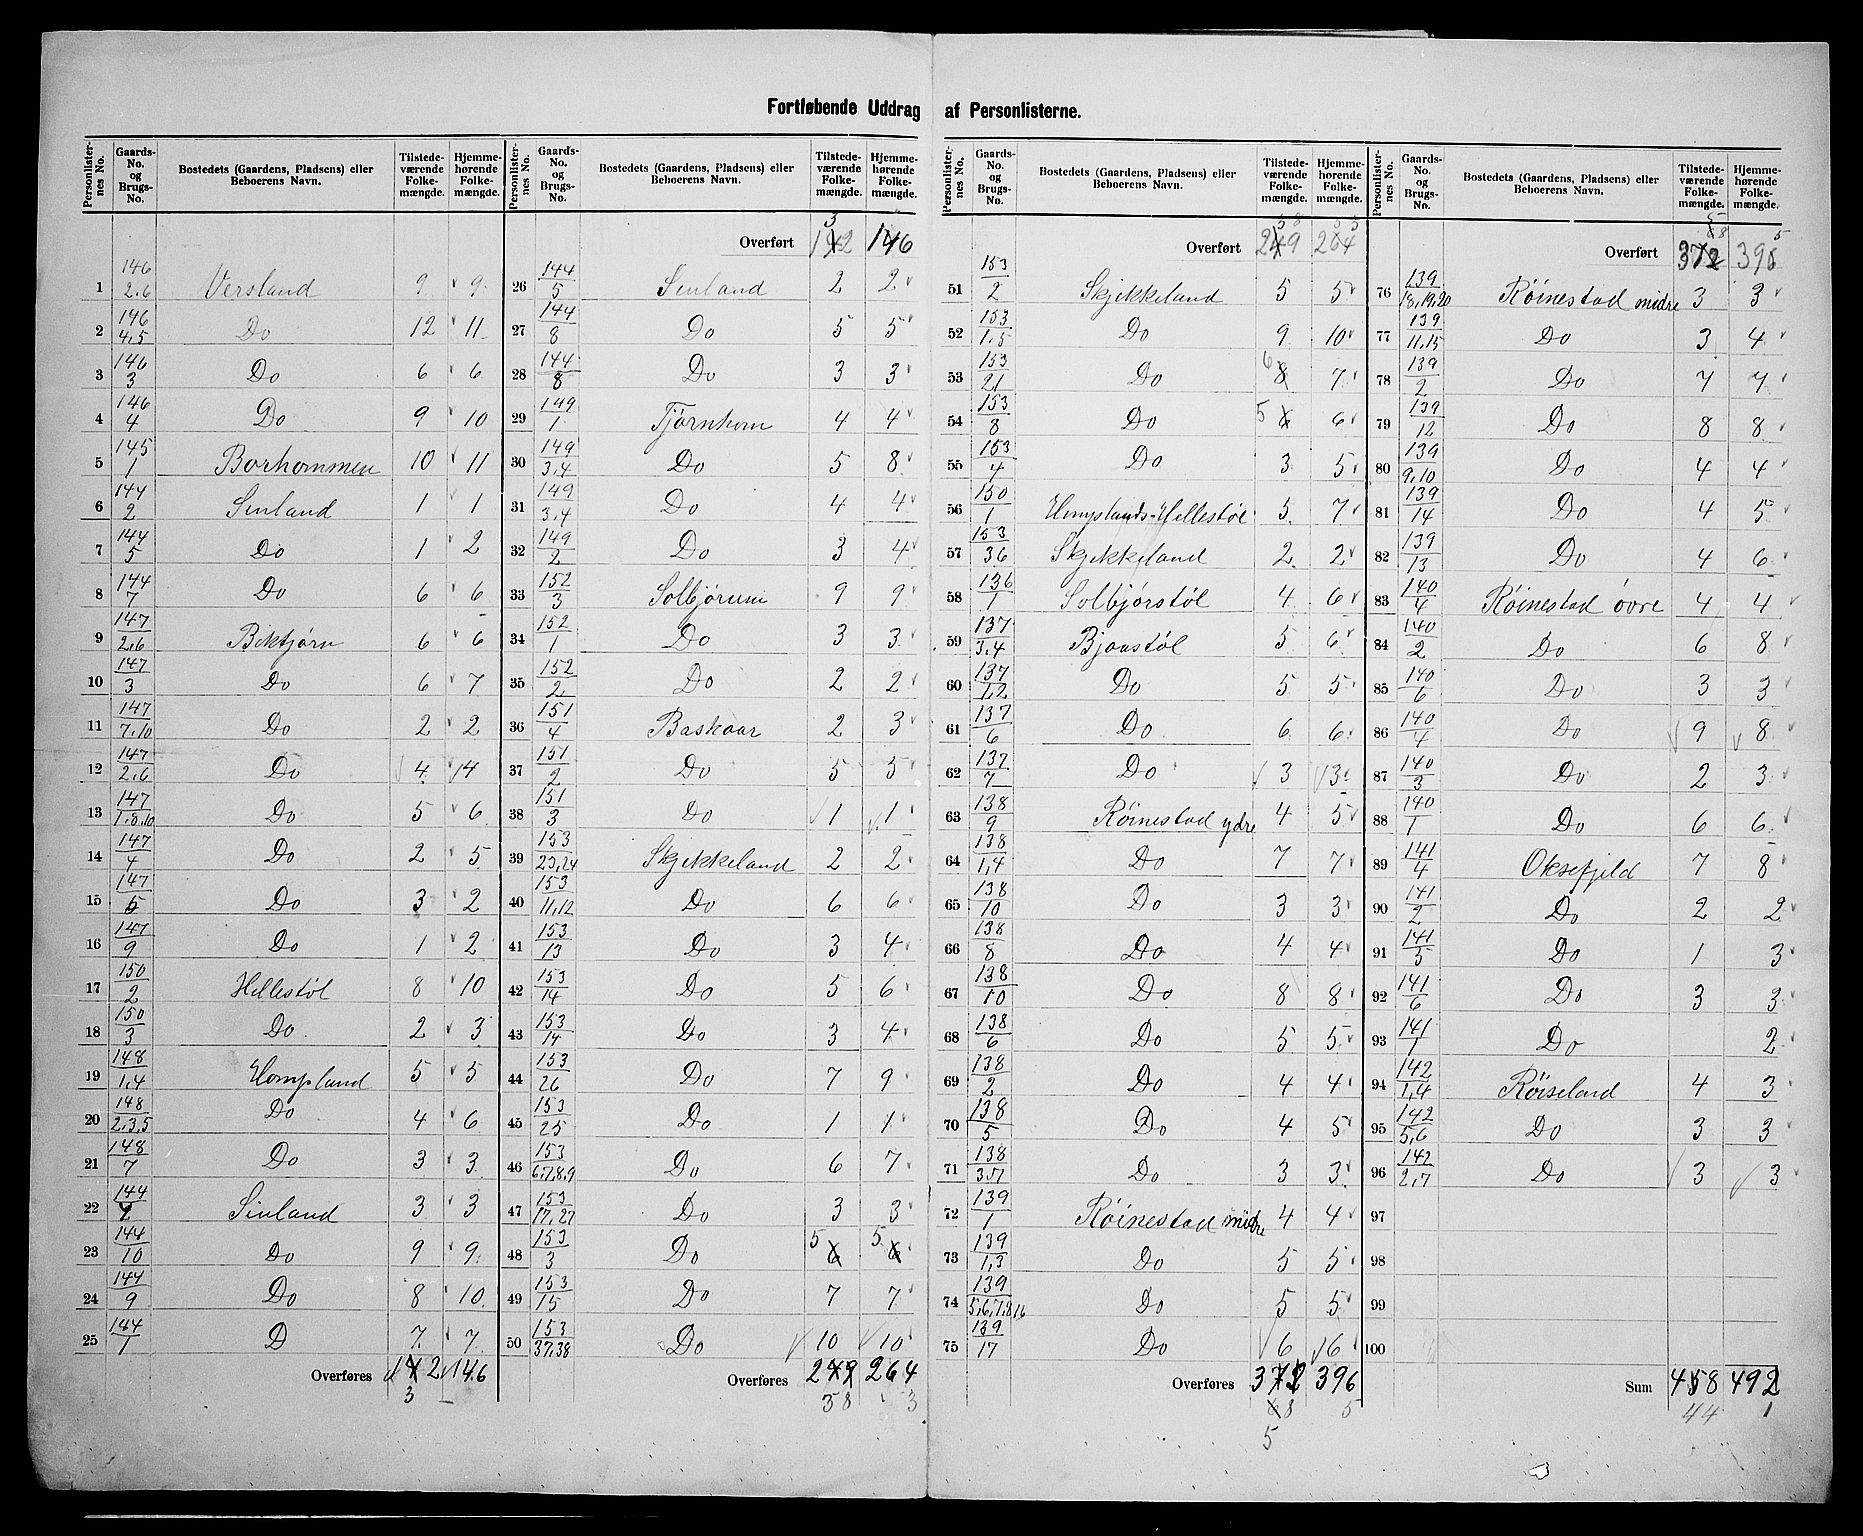 Fortløbende Uddrag af Personlisterne.
Personlister-nes No. | Gaards-No. og Brugs-No. | Bostedets (Gaardens, Pladsens) eller Beboerens Navn. | Tilstede-værende Folke-mængde. | Hjemme-hørende Folke-mængde.
1 146/2,6 Versland 9 9
2 146/4,5 Do 12 11
3 146/3 Do 6 6
4 146/4 Do 9 10
5 145/1 Borhommen 10 11
6 144/2 Sinland 1 1
7 144/5 Do 1 2
8 144/7 Do 6 6
9 147/2,6 Boktjørn 6 6
10 147/3 Do 6 7
11 147/7,10 Do 2 2
12 147/2,6 Do 4 4
13 147/1,8,10 Do 5 6
14 147/4 Do 2 5
15 147/5 Do 3 2
16 147/9 Do 1 2
17 150/2 Hellestøl 8 10
18 150/3 Do 2 3
19 148/1,4 Hompland 5 5
20 148/2,3,5 Do 4 6
21 148/7 Do 3 3
22 144/2 Sinland 3 3
23 144/10 Do 9 9
24 144/9 Do 8 10
25 144/1 D 7 7
Overføres 142 146
3
Personlister-nes No. | Gaards-No. og Brugs-No. | Bostedets (Gaardens, Pladsens) eller Beboerens Navn. | Tilstede-værende Folke-mængde. | Hjemme-hørende Folke-mængde.
3
Overført 142 146
26 144/5 Sinland 2 2
27 144/8 Do 5 5
28 144/8 Do 3 3
29 149/1 Tjørnhom 4 4
30 149/3,4 Do 5 8
31 149/3,4 Do 4 4
32 149/2 Do 3 4
33 152/3 Solbjørum 9 9
34 152/1 Do 3 3
35 152/2 Do 2 2
36 151/4 Baskaar 2 3
37 151/2 Do 5 5
38 151/3 Do 1 1
39 153/23,24 Skjekkeland 2 2
40 153/11,12 Do 6 6
41 153/13 Do 3 4
42 153/14 Do 5 6
43 153/14 Do 3 4
44 153/26 Do 7 9
45 153/25 Do 1 1
46 153/6,7,8,9 Do 6 7
47 153/17,27 Do 3 3
48 153/3 Do 5 6 5 6
49 153/15 Do 7 7
50 153/37,38 Do 10 10
Overføres 249 264
38 3
Personlister-nes No. | Gaards-No. og Brugs-No. | Bostedets (Gaardens, Pladsens) eller Beboerens Navn. | Tilstede-værende Folke-mængde. | Hjemme-hørende Folke-mængde.
38 3
Overført 249 264
51 153/2 Skjekkeland 5 5
52 153/1,5 Do 9 10
53 153/21 Do 6 8 7
54 153/8 Do 5 6 6
55 153/4 Do 3 5
56 150/1 Homplands-Hellestøl 5 7
57 153/36 Skjekkeland 2 2
58 136/1 Solbjørstøl 4 6
59 137/3,4 Bjonstøl 5 6
60 137/1,2 Do 5 5
61 137/6 Do 6 6
62 137/7 Do 3 3
63 138/9 Røinestad ydre 4 5
64 138/1,4 Do 7 7
65 138/10 Do 3 3
66 138/8 Do 4 4
67 138/10 Do 8 8
68 138/6 Do 5 5
69 138/2 Do 4 4
70 138/5 Do 4 5
71 138/3,7 Do 3 3
72 139/1 Røinestad midre 4 4
73 139/1,3 Do 5 5
74 139/5,6,7,8,16 Do 5 5
75 139/17 Do 6 6
Overføres 372 396
68 5
5
Personlister-nes No. | Gaards-No. og Brugs-No. | Bostedets (Gaardens, Pladsens) eller Beboerens Navn. | Tilstede-værende Folke-mængde. | Hjemme-hørende Folke-mængde.
5
68 5
Overført 372 396
76 139/18,19,20 Røinestad midre 3 3
77 139/11,15 Do 3 4
78 139/2 Do 7 7
79 139/12 Do 8 8
80 139/9,10 Do 4 4
81 139/14 Do 4 5
82 139/13 Do 4 6
83 140/4 Røinestad øvre 4 4
84 140/2 Do 6 8
85 140/6 Do 3 3
86 140/4 Do 9 8
87 140/3 Do 2 3
88 140/1 Do 6 6
89 141/4 Oksefjeld 7 8
90 141/2 Do 2 2
91 141/5 Do 1 3
92 141/6 Do 3 3
93 141/1 Do 2
94 142/1,4 Røiseland 4 3
95 142/5,6 Do 3 3
96 142/2,7 Do 3 3
97
98
99
100
Sum 458 492
44 1